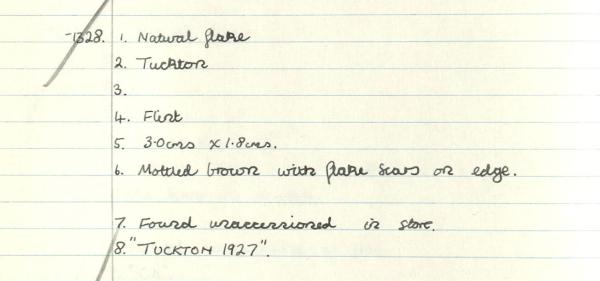 1328. 1. Natural flake
2. Tuckton
3.
4. Flint
5. 3.0cms x 1.8cms.
6. Mottled brown with flake scars on edge.
7. Found unaccessioned in store.
8. "TUCKTON 1927".